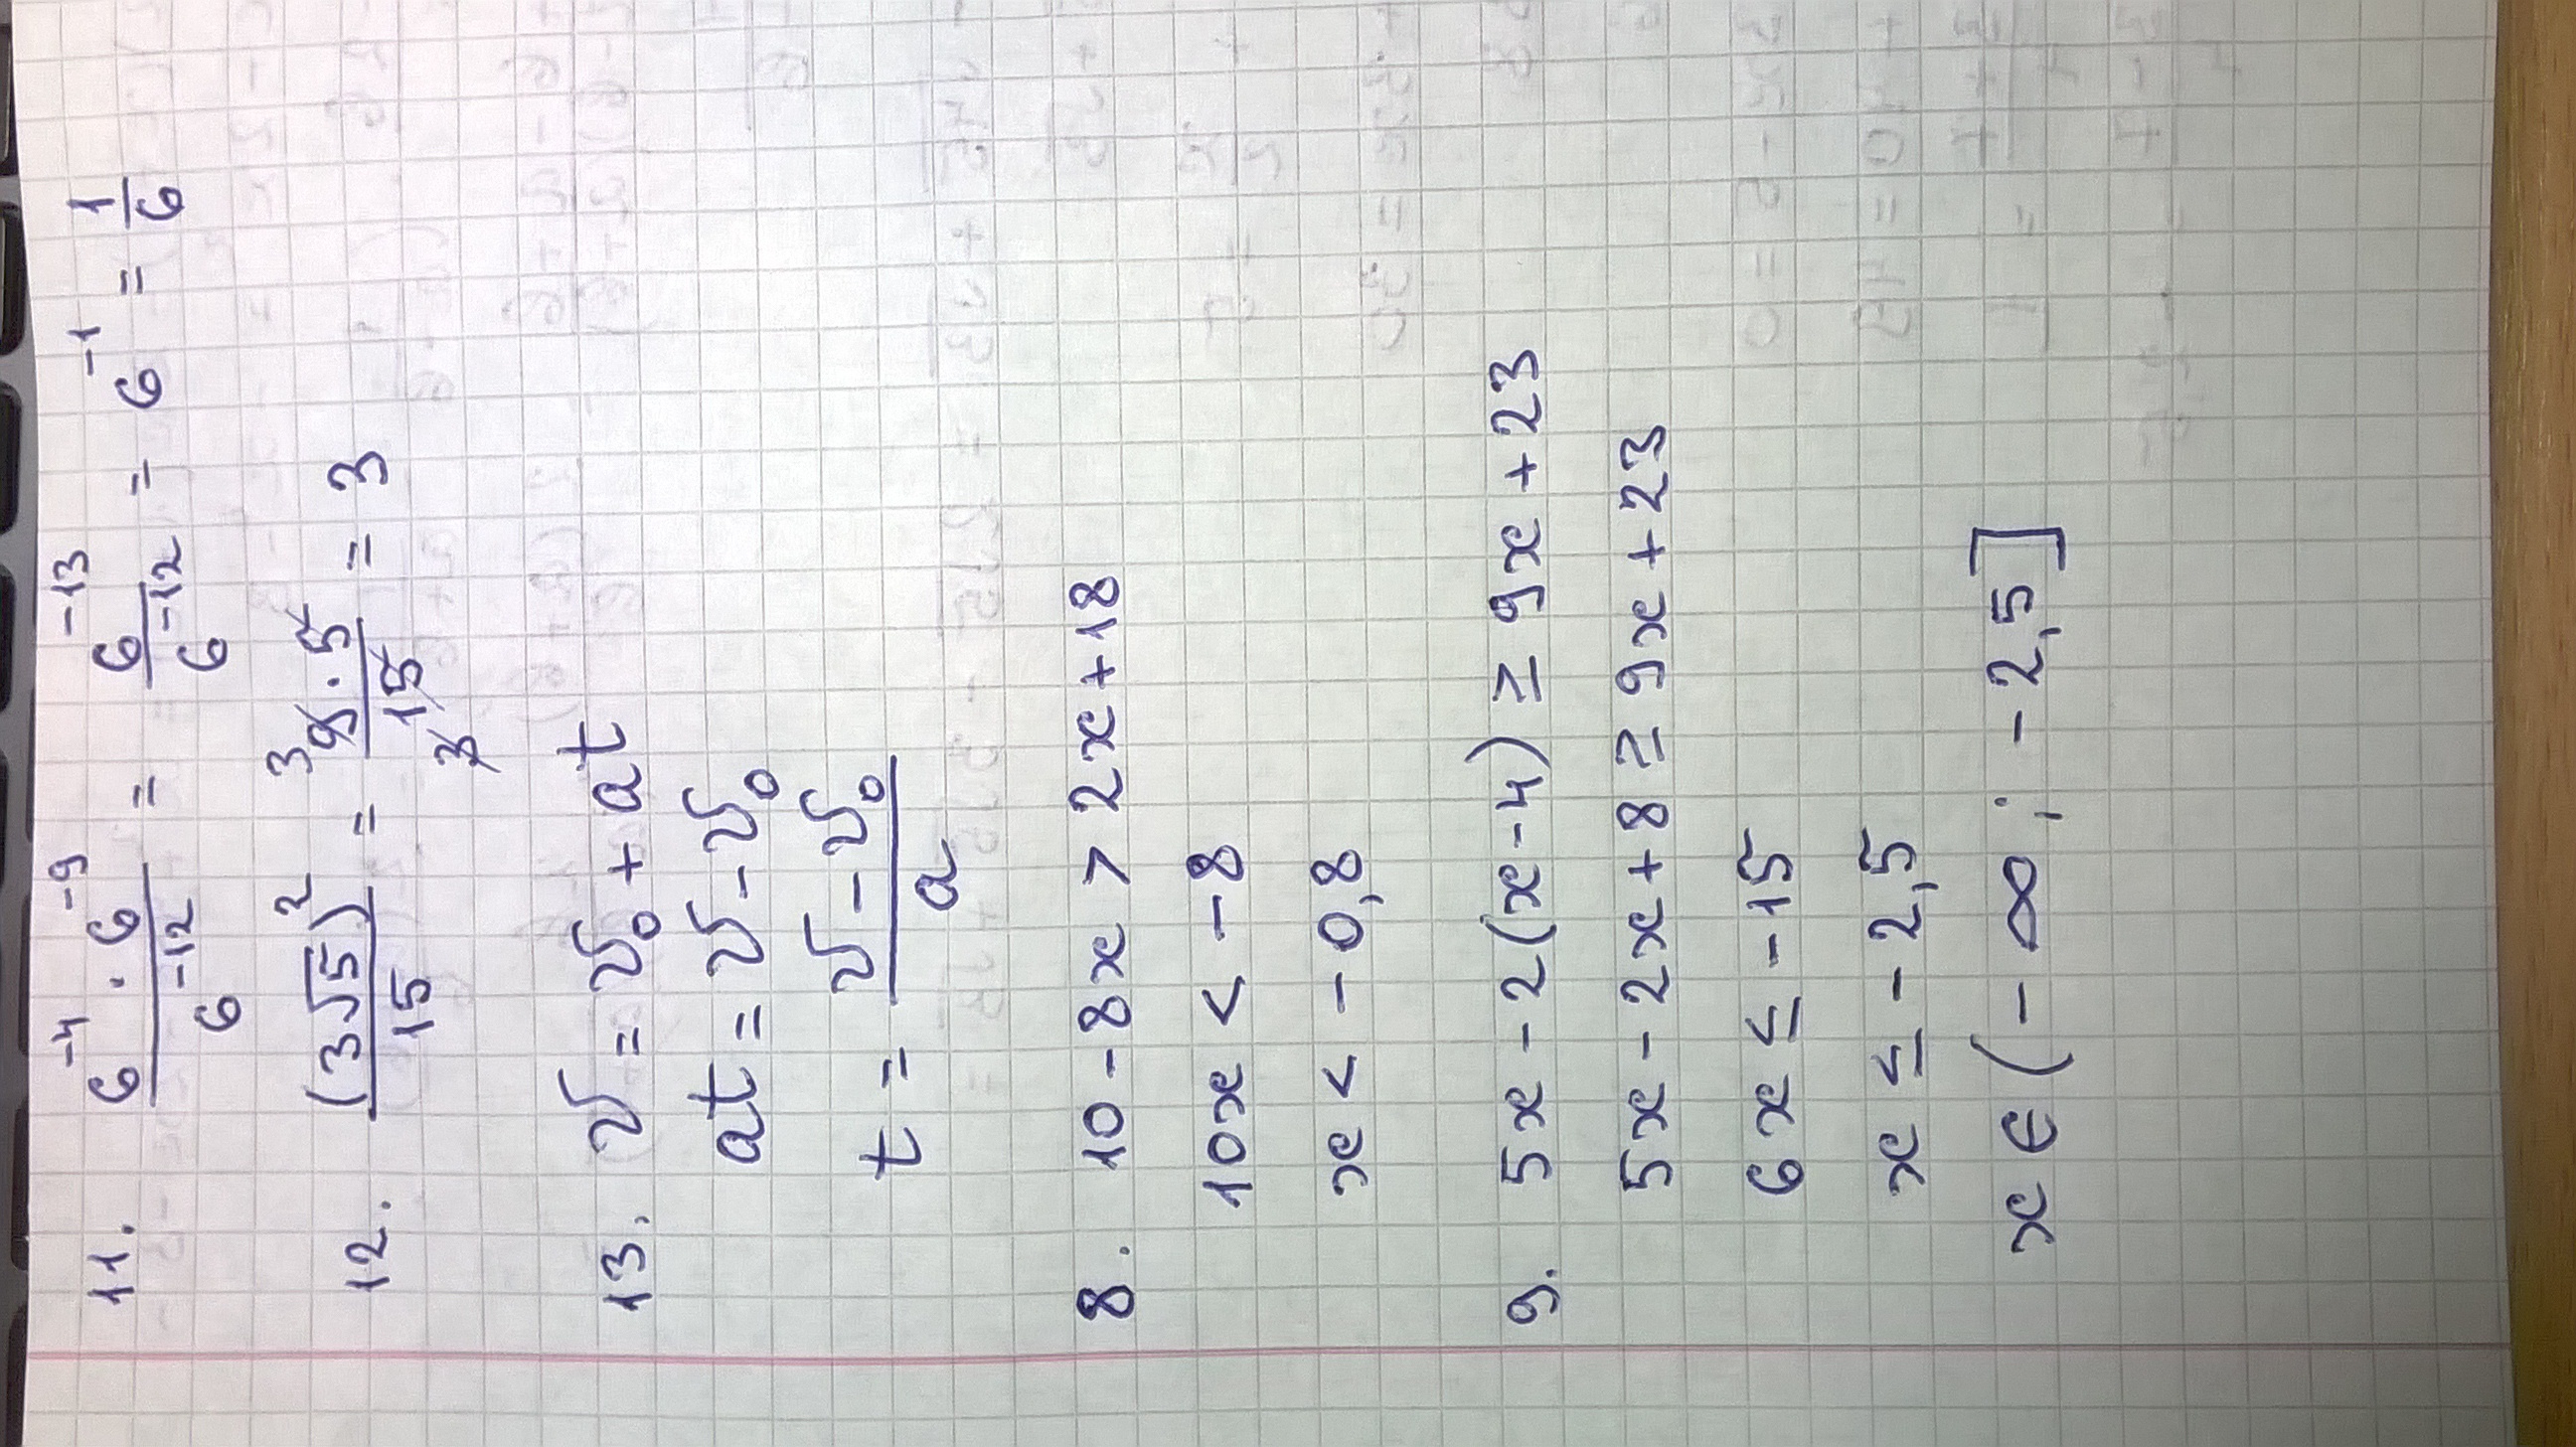 11. (6^-4 · 6^-9)/6^-12 = 6^-13/6^-12 = 6^-1 = 1/6
12. (3√5)^2/15 = 9·5/15 = 3
3
3
13. v = v₀ + at
at = v - v₀
t = (v - v₀)/a
8. 10 - 8x > 2x + 18
10x < -8
x < -0,8
9. 5x - 2(x-4) ≥ 9x + 23
5x - 2x + 8 ≥ 9x + 23
6x ≤ -15
x ≤ -2,5
x ∈ (-∞; -2,5]